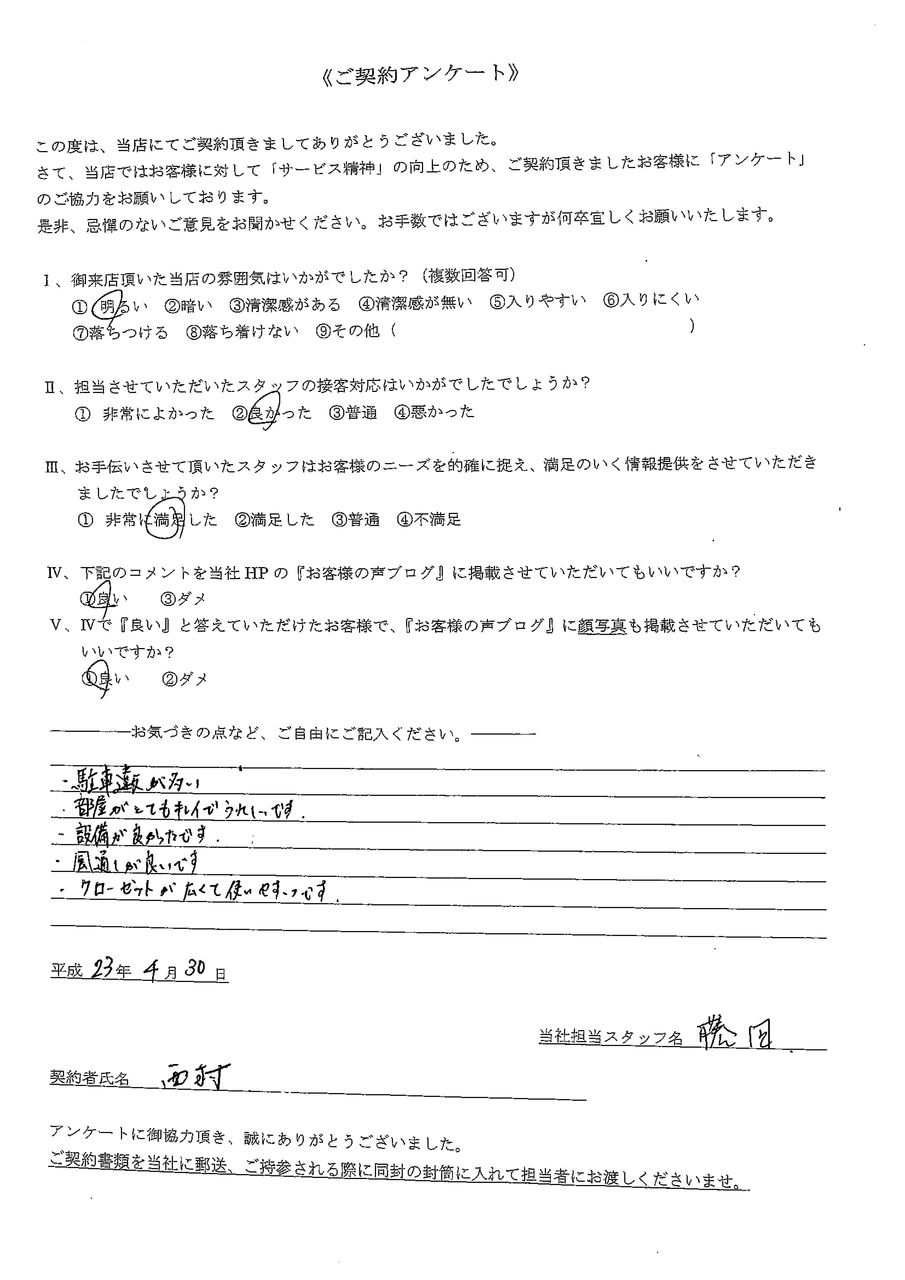 《ご契約アンケート》
この度は、当店にてご契約頂きましてありがとうございました。
さて、当店ではお客様に対して「サービス精神」の向上のため、ご契約頂きましたお客様に「アンケート」
のご協力をお願いしております。
是非、忌憚のないご意見をお聞かせください。お手数ではございますが何卒宜しくお願いいたします。
Ⅰ、御来店頂いた当店の雰囲気はいかがでしたか？（複数回答可）
① 明るい ②暗い ③清潔感がある ④清潔感が無い ⑤入りやすい ⑥入りにくい
⑦落ちつける ⑧落ち着けない ⑨その他（ ）
Ⅱ、担当させていただいたスタッフの接客対応はいかがでしたでしょうか？
① 非常によかった ②良かった ③普通 ④悪かった
Ⅲ、お手伝いさせて頂いたスタッフはお客様のニーズを的確に捉え、満足のいく情報提供をさせていただき
ましたでしょうか？
① 非常に満足した ②満足した ③普通 ④不満足
Ⅳ、下記のコメントを当社 HP の『お客様の声ブログ』に掲載させていただいてもいいですか？
①良い ③ダメ
Ⅴ、Ⅳで『良い』と答えていただけたお客様で、『お客様の声ブログ』に顔写真も掲載させていただいても
いいですか？
①良い ②ダメ
―――――お気づきの点など、ご自由にご記入ください。――――
・駐車違反が多い
・部屋がとてもキレイでうれしいです．
・設備が良かったです．
・風通しが良いです
・クローゼットが広くて使いやすいです．
平成 23年 4月 30日
当社担当スタッフ名 藤田
契約者氏名 西村
アンケートに御協力頂き、誠にありがとうございました。
ご契約書類を当社に郵送、ご持参される際に同封の封筒に入れて担当者にお渡しくださいませ。